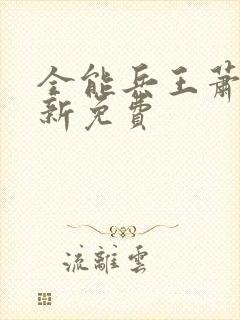 全能兵王蕭
新免費
流離雲